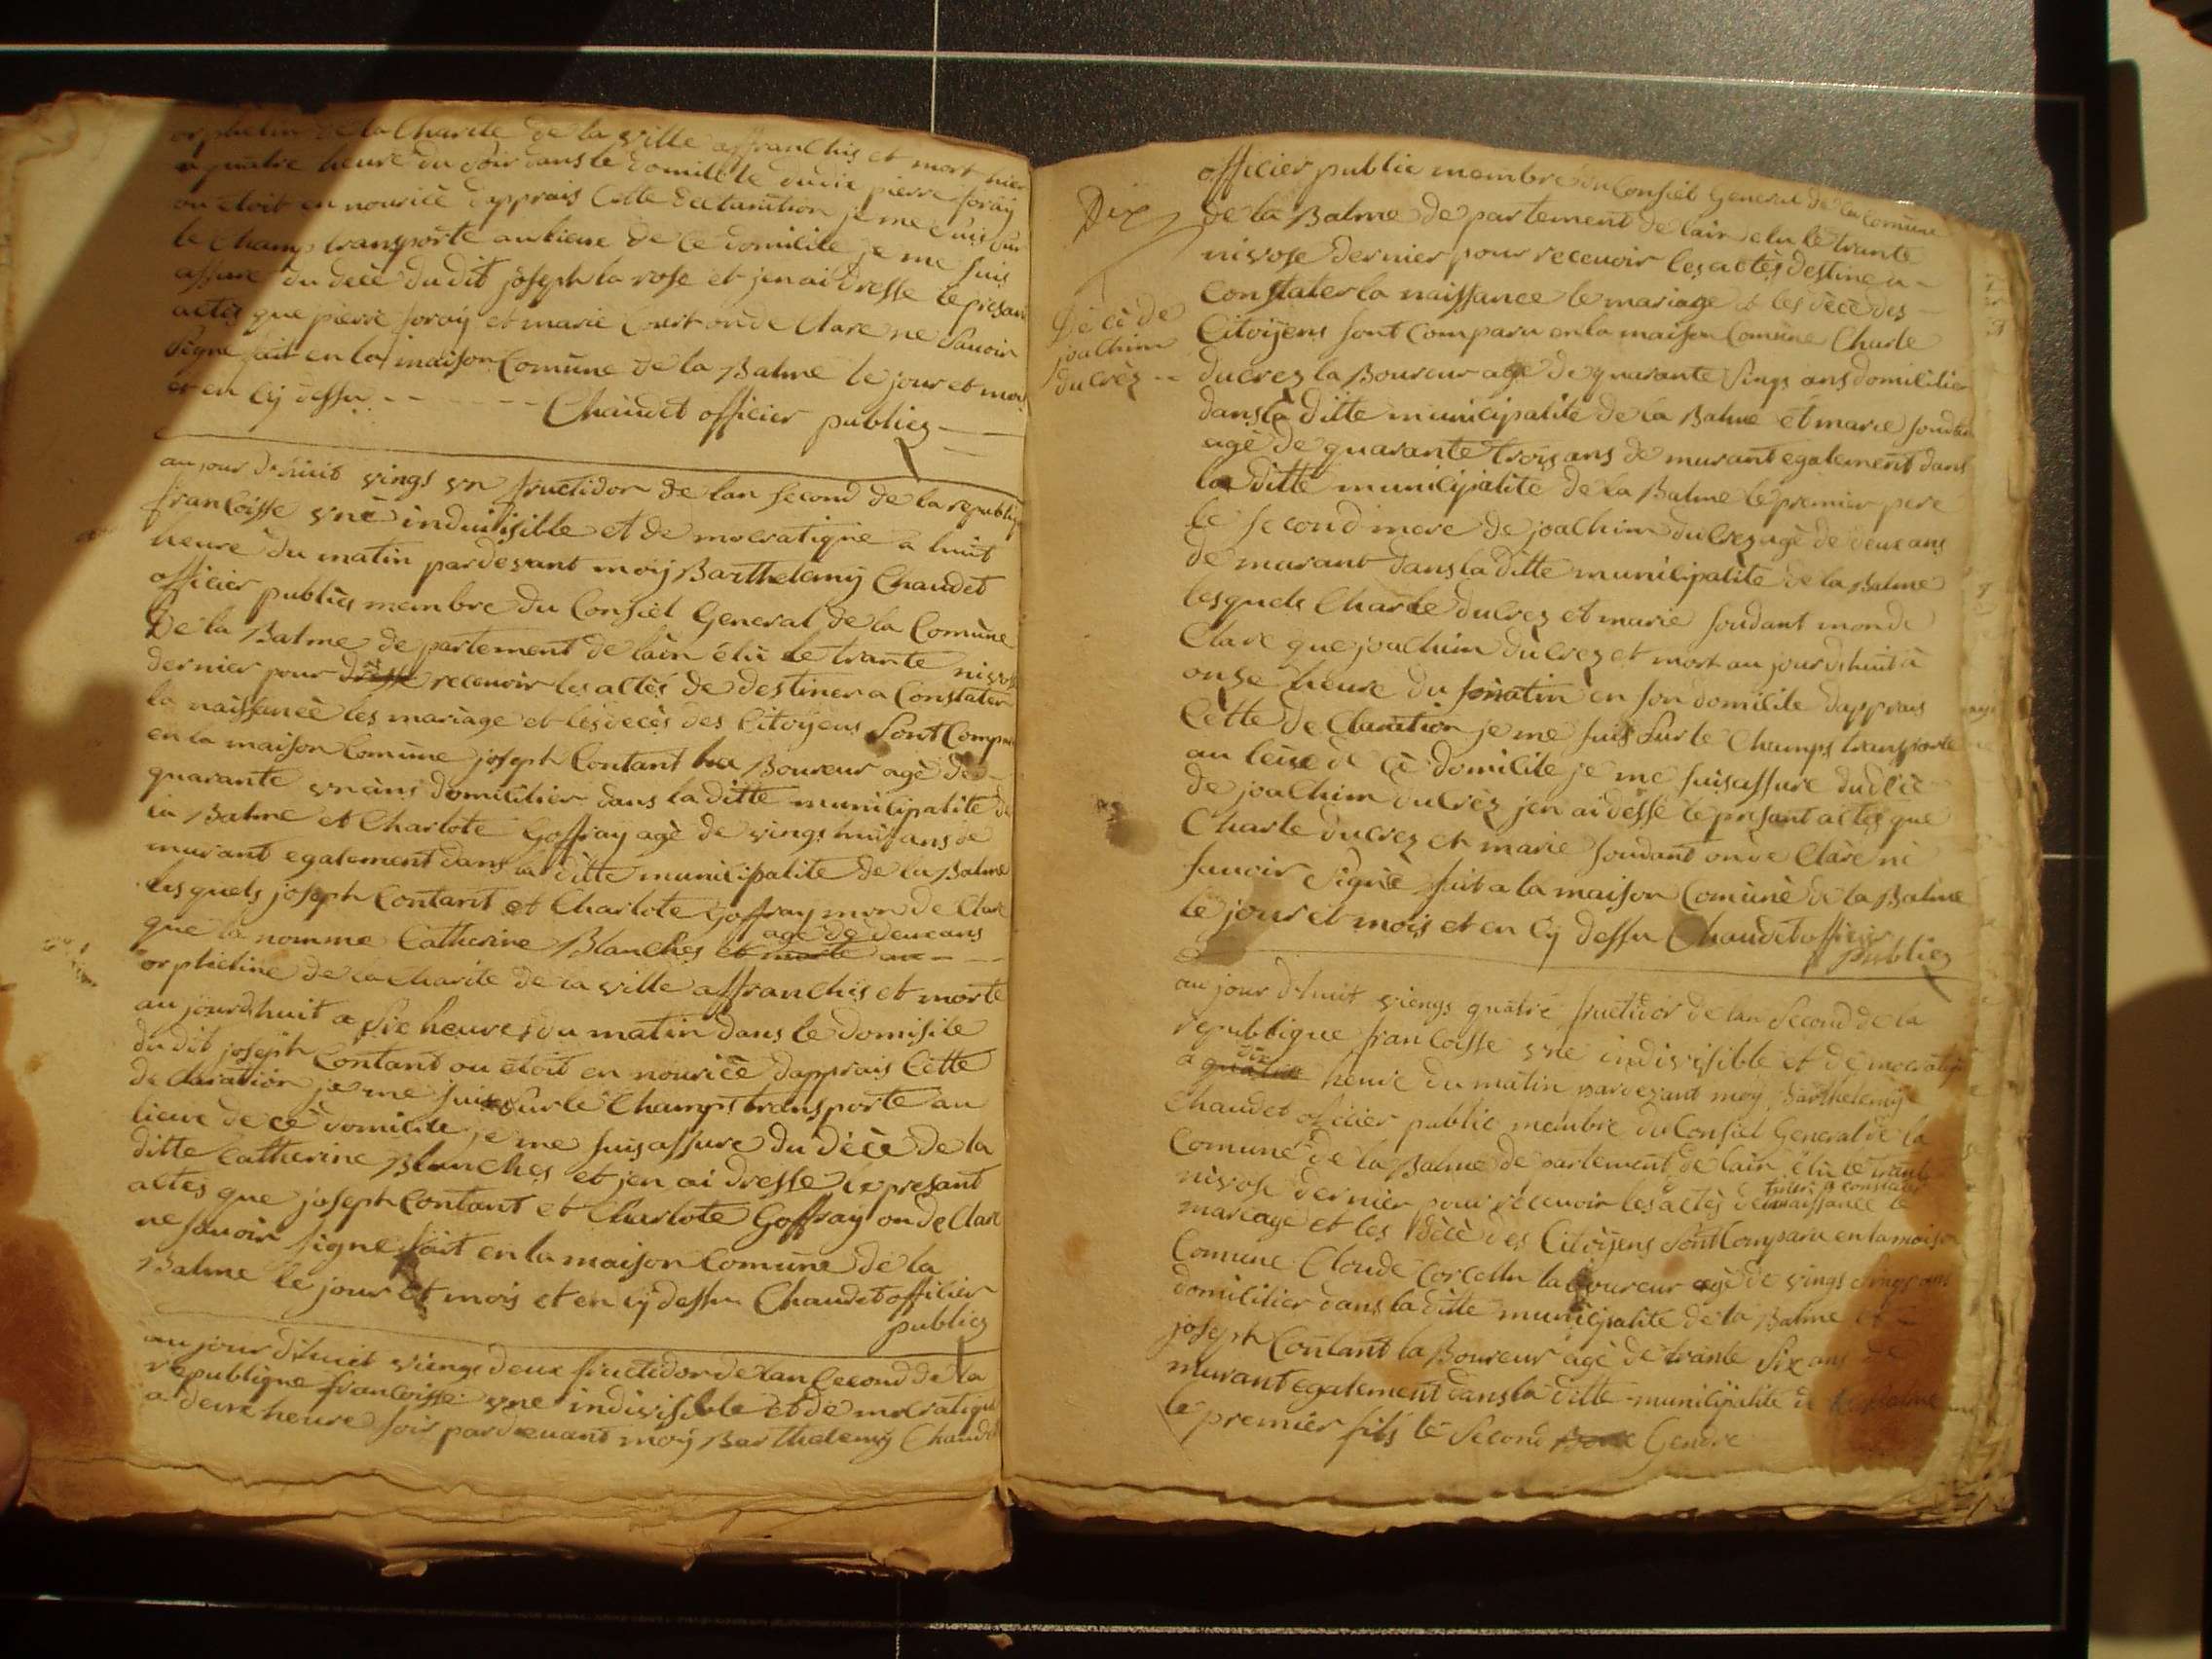 orphelin de la Charite de la ville affranchis et mort hier
a quatre heure du soir dans le domicile dudit pierre foray
ou etoit en nourice dapprais Cette declaration je me suis sur
le Champ transporte au lieux de Ce domicile je me suis
assure du decè dudit joseph la rose et jen ai dresse le presan
actes que pierre foray et marie on de Clare ne Savoir
Signe fait en la maison Comune de la Balme le jour et moi
et en Cy dessu - - - - - - Chaudet officier publicq
au jour d'huit vings vn fructidor de lan second de la republiq
francoisse vnè indiuisible et de mocratiqie a huit
heure du matin pardevant moÿ Barthelemÿ Chaudet
officier publicq membre du Consiel General de la Comùne
De la Balme de partement de lain élù le trante nivose
dernier pour dresse recevoir les actès de destiner a Constater
la naissanceè les mariage et les decès des Citoÿens Sont Compar
en la maison Comune joseph Contant la Boureur agè de
quarante vn ans domicilier dans la ditte municipalite de
la Balme et Charlote Goffraÿ agè de vings huit ans de
murant egalement dans la ditte municipalite de la Balme
lesquels joseph Contant et Charlote Goffray mon de Clare
agè de deuxans
que la nomme Catherine Blanches et morte au - - -
orphieline de la Charite de la ville affranchis et morte
au jourdhuit a Six heures du matin dans le domisile
du dit joseph Contant ou etoit en nouricè dapprais Cette
de Claration je me suis Sur le Champs transporte au
lieux de cè domicile je me suis assure du dècè de la
ditte Catherine Blanches et jen ai dresse le presant
actes que joseph Contant et Charlote Goffraÿ on de Clare
ne savoir signe fait en la maison Comune de la
Balme le jour et mois et en cÿ dessu Chaudet officier
publicq
au jour d'huit viengs deux fructidor de lan Second de la
republique francoisse vne indivisible et de mocratique
a deux heure soir pardevant moÿ Barthelemÿ Chaudet
Dix
officier public membre du Consièl General de la Comune
de la Balme de partement de lain elu le trante
nivose dernier pour recevoir les actès destine a -
Constater la naissance le mariage & les dècè des
Décè de
joachim
ducrèz - -
Citoÿens sont Comparu en la maison Comune Charle
ducrez la Boureur age de quarante Sings ans domicilier
dans la ditte municipalite de la Balme et marie soudan
agè de quarante trois ans de murant egalement dans
la ditte municipalite de la Balme le premier pere
le second mere de joachim ducrez agè de deux ans
de murant dans la ditte municipalite de la Balme
lesquels Charle ducrez et marie soudant mon de
Clare que joachim ducrez et mort au jour dhuit à
onse heure du matin en son domicile dapprais
Cètte de Claration je me suis Sur le Champs transporte
au leiux de cè domicile je me suis assure du decè
de joachim ducrèz jen ai desse le presant actès que
Charle ducrez et marie soudant on de Clare ne
savoir Signè fait a la maison Comune de la Balme
le jour et mois et en Cÿ dessu Chaudet officier
publicq
au jour d'huit viengs quatre fructidor de lan Second de la
republique francoisse vne indivisible et de mocratiq
dix
a quatre heure du matin pardevant moÿ Barthelemÿ
Chaudet officier public membre du Consiel General de la
Comune de la Balme de partement de lain élù le trante
tiner a constater
nivose dernier pour recevoir les actès des naissance le
mariage et les dècè des Citoÿens sont Comparu en la maiso
Comune Claude Corcellu la Boureur agè de vings Sings ans
domicilier dans la ditte municipalite de la Balme et
joseph Contant la Boureur agè de trante Six ans de
murant egalement dans la ditte municipalite de la Balme
le premier fils le Second Gendre